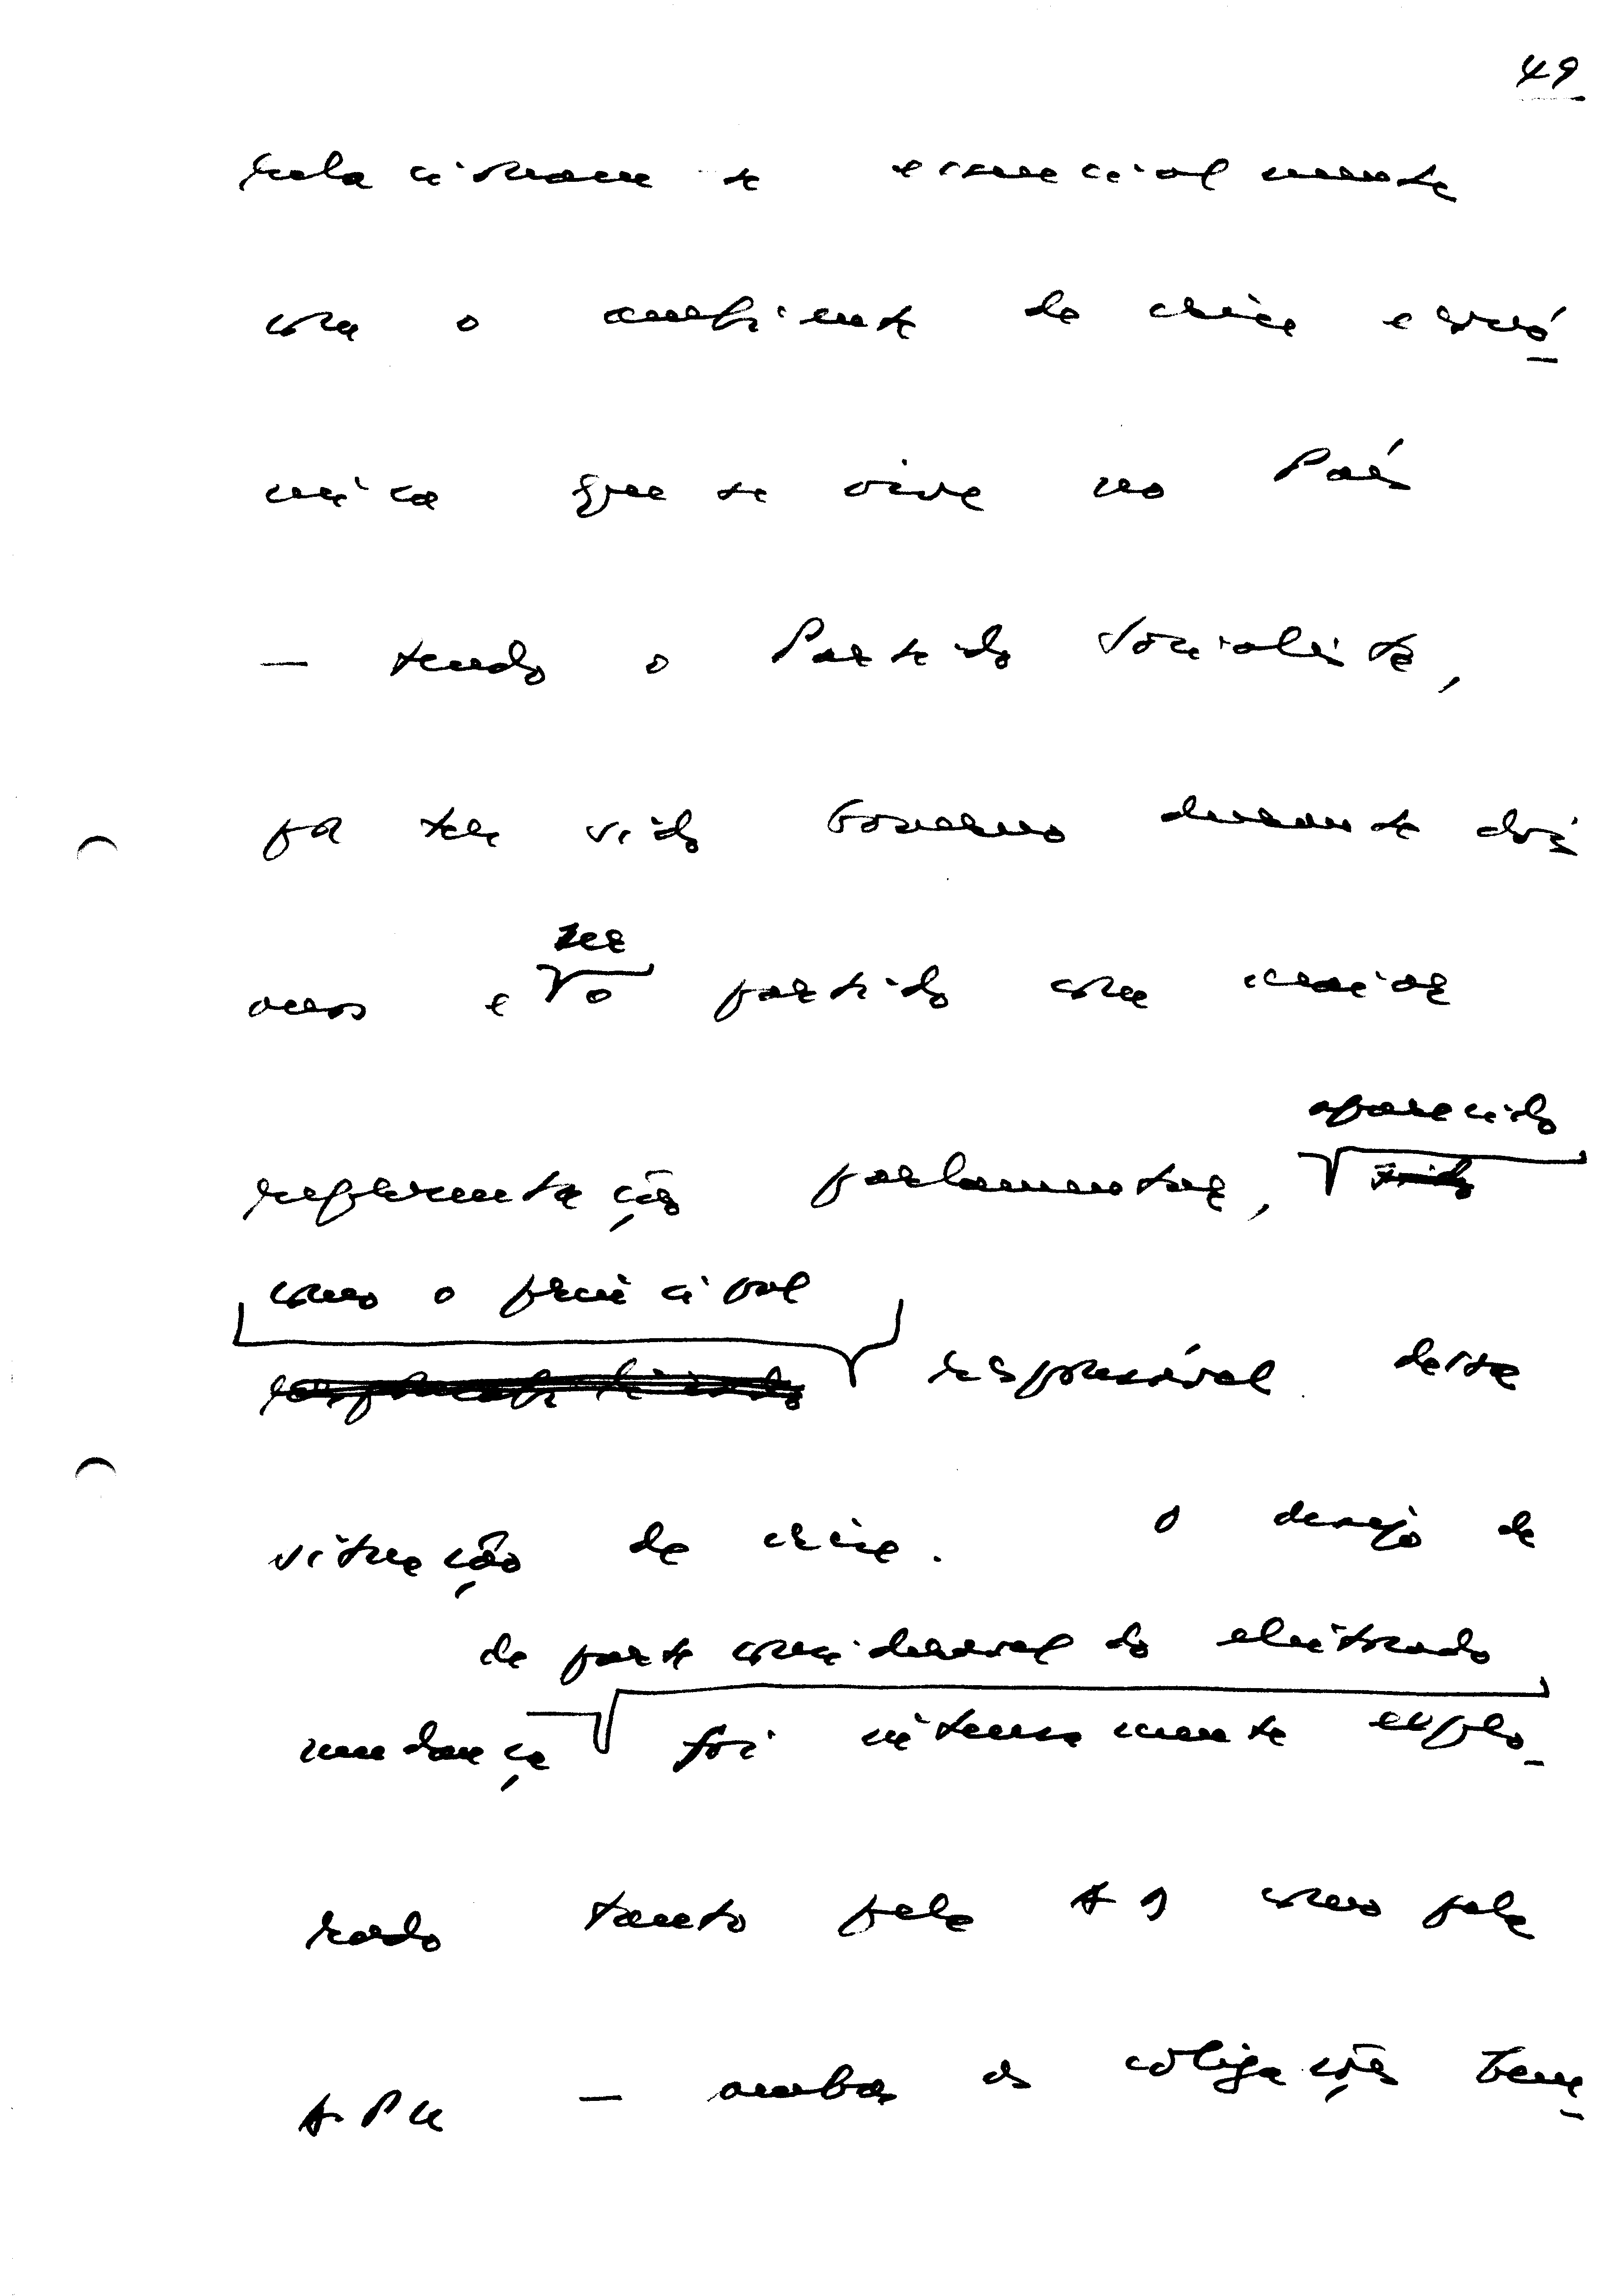 49
relacionam-se essencialmente
com o ambiente de crise econó-
mica que se vive no País
— tendo o Partido Socialista,
por ter sido Governo durante dois
ser
anos e o partido com maior
aparecido
representação parlamentar, sido
como o principal
responsável desta
situação de crise. O desejo de
de parte considerável do eleitorado
mudança foi intensamente explo-
rado tanto pela AD como pela
APU — ambas as coligações bem-